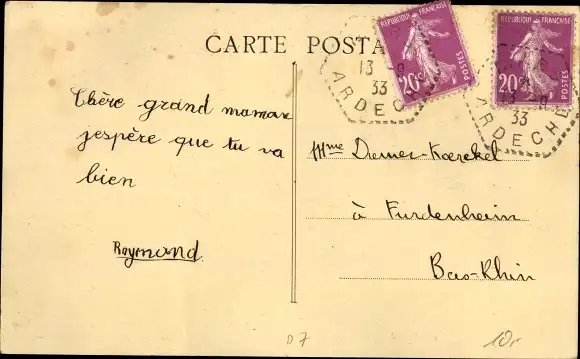 CARTE POSTA
REPUBLIQUE FRANÇAISE
20c
POSTES
REPUBLIQUE FRANÇAISE
20c
POSTES
13 -8
33
ARDECHE
13 -8
33
ARDECHE
Chère grand maman
j'espère que tu va
bien
Raymond
Mme Diemer-Koerckel
à Furdenheim
Bas-Rhin
D7
10,-